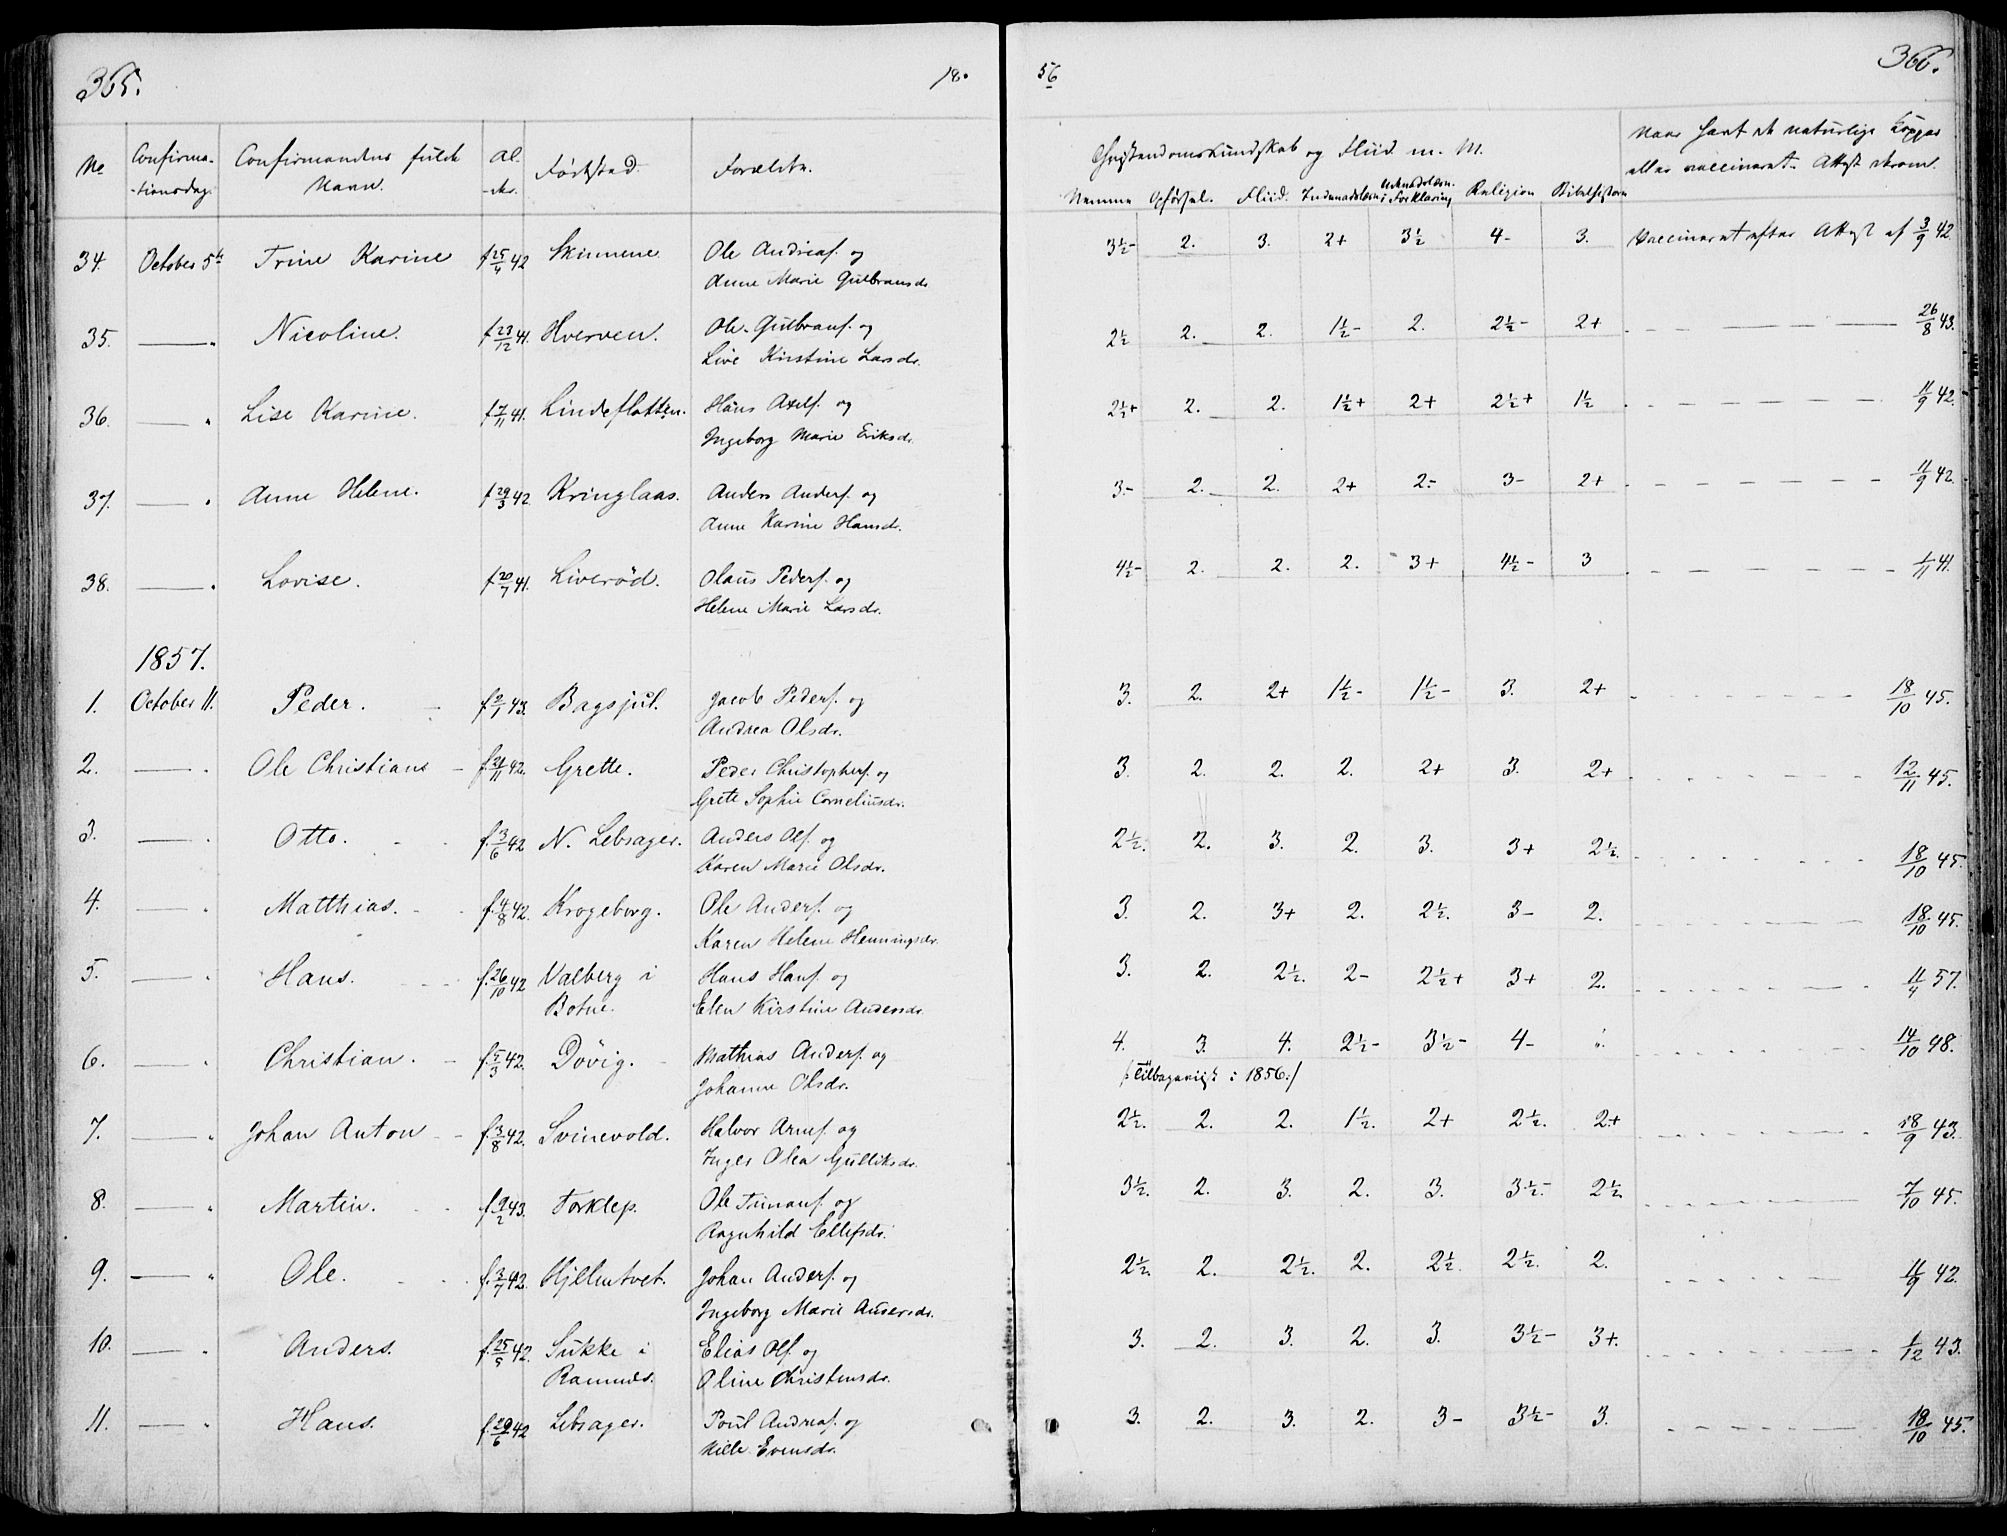 365.
18.
56
366.
No
Confirma-
-tionsdag.
Confirmandens fulde
Navn.
Al-
-der.
Födested.
Forældre.
Christendomskundskab og Fliid m. M.
Nemme Opførsel. Fliid. Indenadslæsn: Forklaring Religion Bibelhistorie
Naar havt de naturlige Kopper
eller vaccineret. Attest derom.
34. October 5te Trine Karine f 25/4 42 Skinmene Ole Andreas. og
Anne Marie Gulbransdr.
3½- 2. 3. 2+ 3½ 4- 3. Vaccineret efter Attest af 3/9 42
35. — " Nicoline. f 23/12 41. Hverven. Ole Gulbrans. og
Live Kirstine Larsdr.
2½ 2. 2. 1½- 2. 2½- 2+ 26/8 43.
36. — " Lise Karine. f 7/11 41. Lindeflatten. Hans Axels. og
Ingeborg Marie Eriksdr.
2½+ 2. 2. 1½+ 2+ 2½+ 1½ 11/9 42.
37. — " Anne Helene. f 29/3 42. Kringlaas. Anders Anders. og
Anne Karine Hansdr.
3- 2. 2. 2+ 2- 3- 2+ 11/9 42
38. — " Lovise. f 20/7 41. Liveröd. Olaus Peders. og
Helene Marie Larsdr.
4½- 2. 2. 2. 3+ 4½- 3 1/11 41.
1857.
1. October 11. Peder. f 2/1 43. Bagsjul. Jacob Peders. og
Andrea Olsdr.
3. 2. 2+ 1½- 1½- 3. 2+ 18/10 45.
2. — " Ole Christians f 21/11 42. Grette. Peder Christophers. og
Grete Sophie Corneliusdr.
3. 2. 2. 2. 2+ 3. 2+ 12/11 45.
3. — " Otto. f. 3/6 42 N. Lebsager. Anders Ols. og
Karen Marie Olsdr.
2½. 2. 3. 2. 3. 3+ 2½. 18/10 45.
4. — " Matthias. f. 4/8 42. Krogeborg. Ole Anders. og
Karen Helene Henningsdr.
3. 2. 3+ 2. 2½. 3- 2. 18/10 45.
5. — " Hans. f. 26/10 42 Valberg i Hans Hans. og
Botne. Elen Kirstine Andersdr.
3. 2. 2½. 2- 2½+ 3+ 2. 11/4 57.
6. — " Christian. f. 5/3 42. Dövig. Mathias Anders. og
Johanne Olsdr.
4. 3. 4. 2½- 3½- 4- ". 14/10 48.
/: tilbageviist i 1856 :/
7. — " Johan Anton f. 3/8 42. Svinevold. Halvor Arnes. og
Inger Olea Gulliksdr.
2½. 2. 2. 1½. 2+ 2½. 2+ 18/9 43.
8. — " Martin. f. 9/2 43. Torklep. Ole Simans. og
Ragnhild Ellefsdr.
3½. 2. 3. 2. 3. 3½- 2½ 7/10 45.
9. — " Ole. f. 3/7 42. Hjelmtvet. Johan Anders. og
Ingeborg Marie Andersdr.
2½. 2. 2½. 2. 2½. 2½. 2. 11/9 42.
10. — " Anders. f. 25/5 42. Sukke i Elias Ols. og
Ramnes. Oline Christensdr.
3. 2. 3. 2. 3. 3½- 3+. 1/12 43.
11. — " Hans. f. 29/6 42 Lebsager. Poul Andreas. og
Nille Evensdr.
3. 2. 3. 2. 3- 3½- 3. 18/10 45.